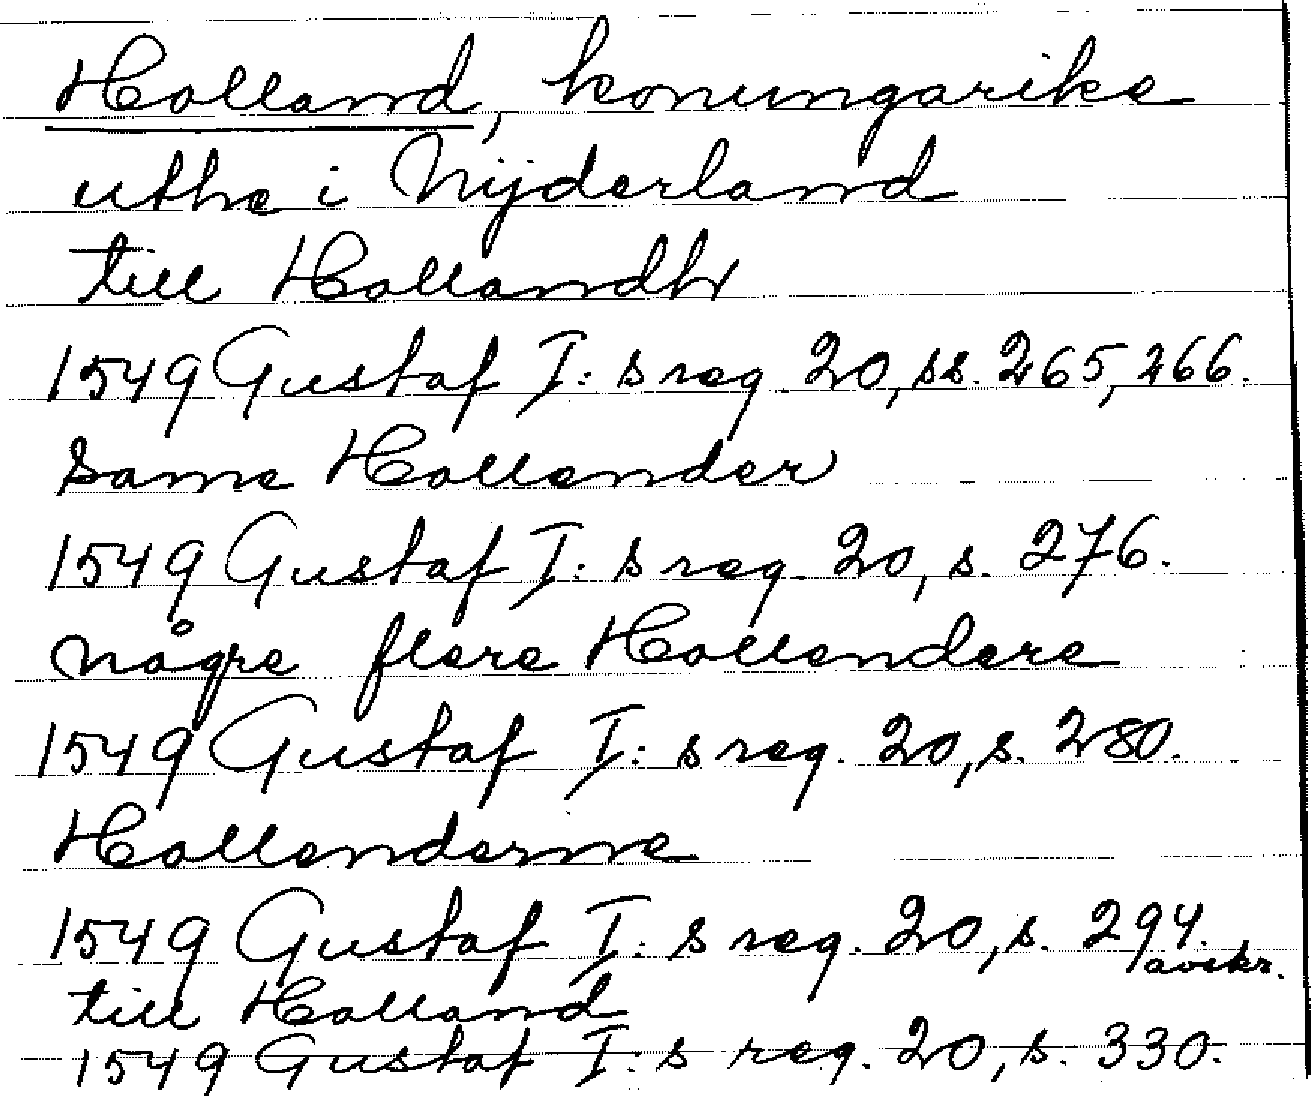 Holland, konungarike
uthe i Nijderland
till Hollandh
1549 Gustaf I:s reg. 20, ss. 265, 266.
Same Hollender
1549 Gustaf I:s reg. 20, s. 276.
någre flere Hollendere
1549 Gustaf I:s reg. 20, s. 280.
Hollenderne
1549 Gustaf I:s reg. 20, s. 294.
avskr.
till Holland
1549 Gustaf I:s reg. 20, s. 330.